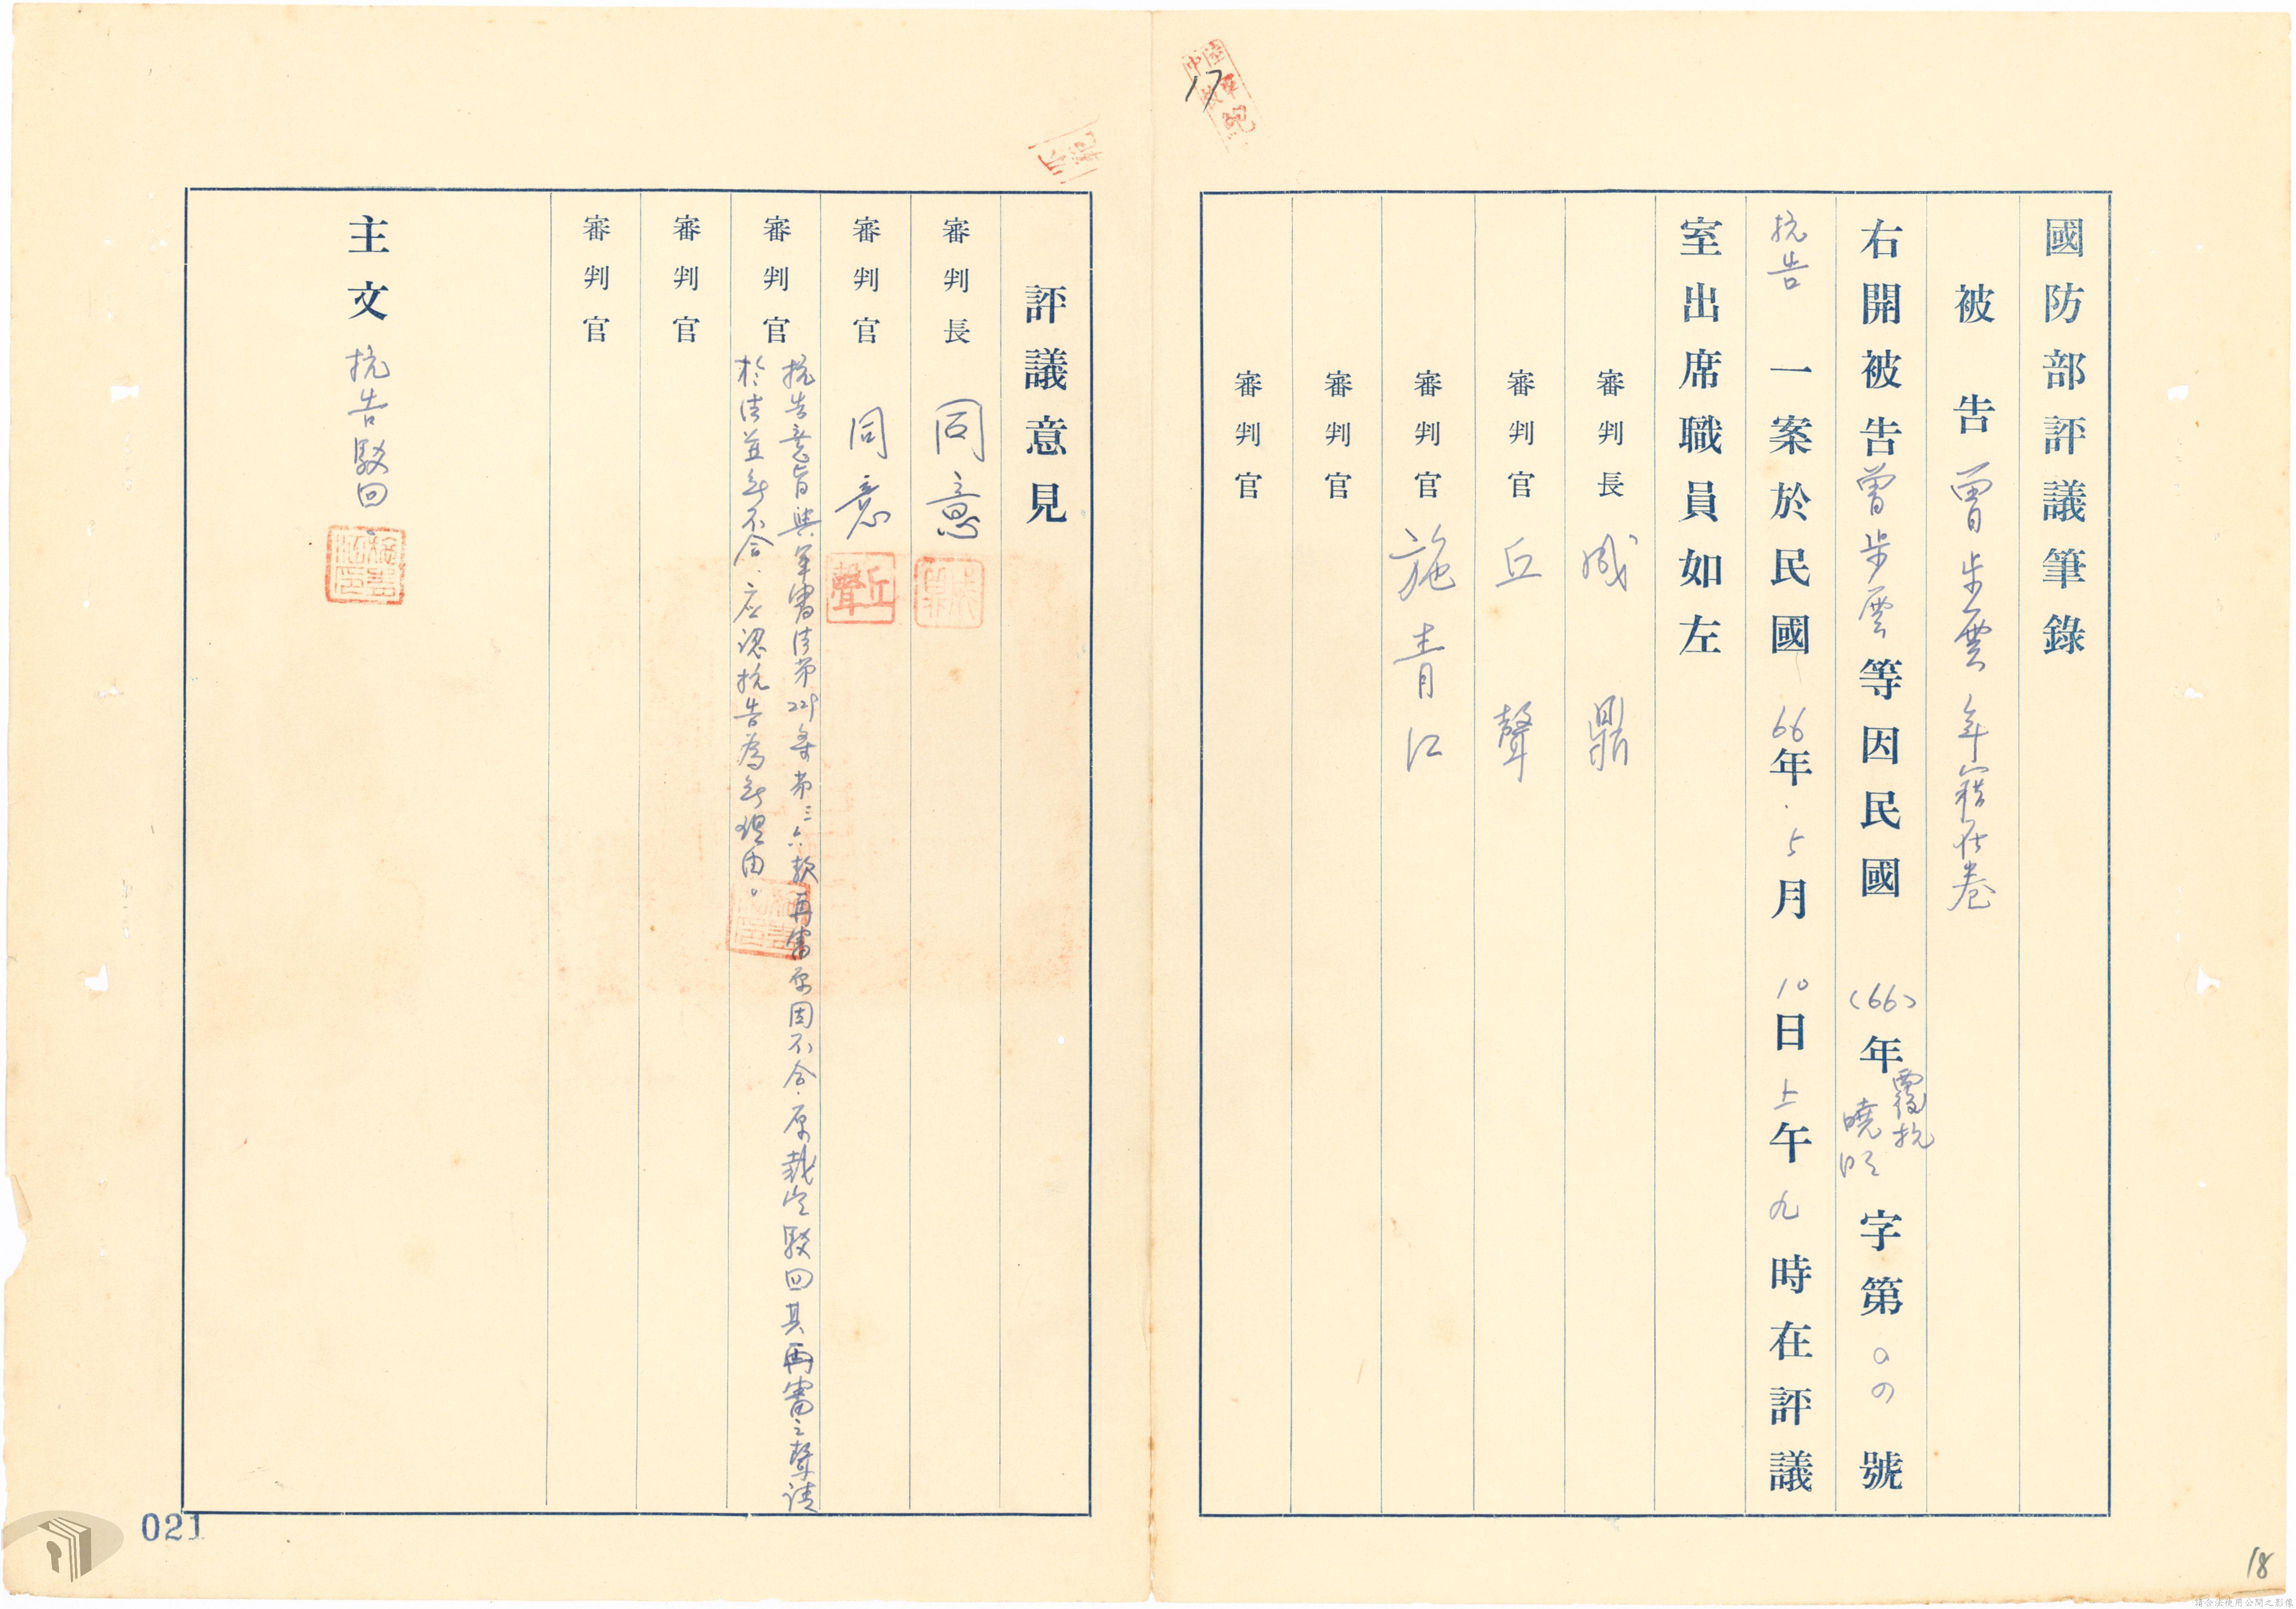 國防部評議筆錄
被告 曾步雲 年籍在卷
右開被告曾步雲等因民國(66)年覆抗曉明字第00號
抗告一案於民國66年5月10日上午九時在評議
室出席職員如左
審判長 臧鼎
審判官 丘聲
審判官 施青江
審判官
審判官
17
評議意見
審判長 同意
審判官 同意
丘聲
審判官 抗告意旨與軍審法第229條第三六款再審原因不合,原裁定駁回其再審之聲請
於法並無不合,应認抗告為無理由。
審判官
審判官
主文 抗告駁回。
021
18
請合法使用公開之影像